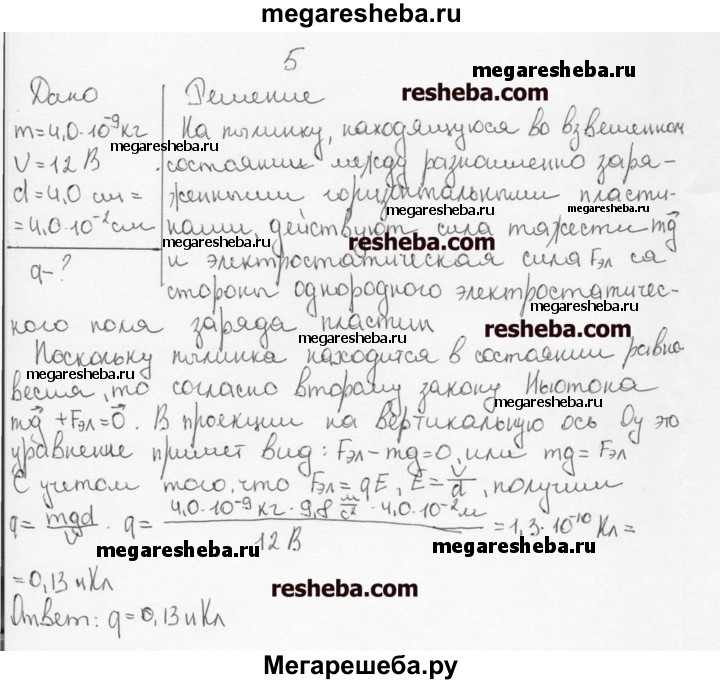 megaresheba.ru
5
Дано
Решение
m=4,0·10⁻⁹кг
V=12 В
d=4,0 см=
=4,0·10⁻²см
q-?
На пылинку, находящуюся во взвешенном
состоянии между разноименно заря-
женными горизонтальными пласти-
нами, действуют сила тяжести mg⃗
и электростатическая сила Fэл со
стороны однородного электростатичес-
кого поля заряда пластин
Поскольку пылинка находится в состоянии равно
весия, то согласно второму закону Ньютона
mg⃗ +Fэл=0⃗. В проекции на вертикальную ось Oy это
уравнение примет вид: Fэл-mg=0, или mg=Fэл
С учетом того, что Fэл=qE, E=V/d, получим
q=mgd/V. q=(4,0·10⁻⁹кг·9,8 м/с²·4,0·10⁻²м)/12 В=1,3·10⁻¹⁰Кл=
=0,13нКл
Ответ: q=0,13нКл
megaresheba.ru
resheba.com
megaresheba.ru
megaresheba.ru
resheba.com
megaresheba.ru
megaresheba.ru
megaresheba.ru
resheba.com
megaresheba.ru
resheba.com
megaresheba.ru
megaresheba.ru
megaresheba.ru
resheba.com
megaresheba.ru
megaresheba.ru
resheba.com
Мегарешеба.ру